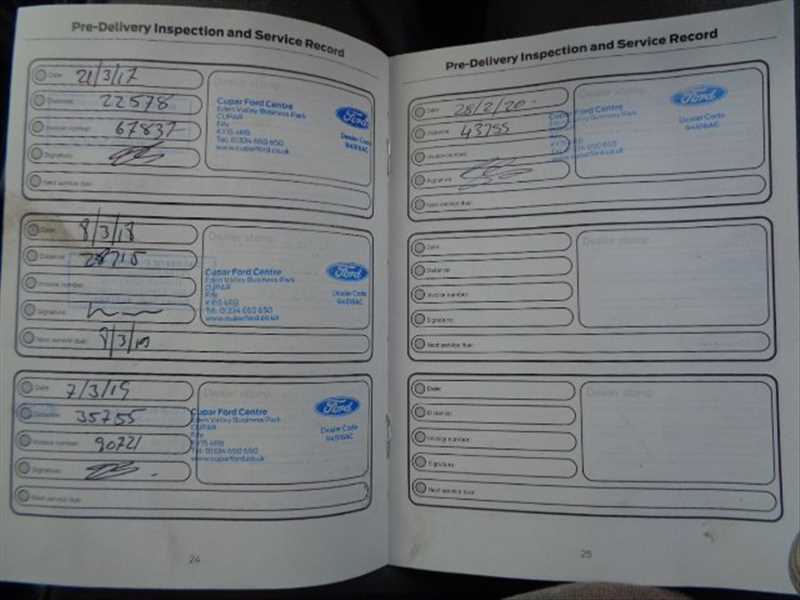 Pre-Delivery Inspection and Service Record
Date: 21/3/17
Distance: 22578
Invoice number: 67837
Signature:
Next service due:
Dealer stamp
Cupar Ford Centre
Eden Valley Business Park
CUPAR
Fife
KY15 4RB
Tel: 01334 650 650
www.cuparford.co.uk
Ford
Dealer Code
Date: 8/3/18
Distance: 28715
Invoice number:
Signature:
Next service due: 8/3/19
Dealer stamp
Cupar Ford Centre
Eden Valley Business Park
CUPAR
Fife
KY15 4RB
Tel: 01334 650 650
www.cuparford.co.uk
Ford
Dealer Code
Date: 7/3/19
Distance: 35755
Invoice number: 90721
Signature:
Next service due:
Dealer stamp
Cupar Ford Centre
Eden Valley Business Park
CUPAR
Fife
KY15 4RB
Tel: 01334 650 650
www.cuparford.co.uk
Ford
Dealer Code
24
Pre-Delivery Inspection and Service Record
Date: 28/2/20
Distance: 43755
Invoice number:
Signature:
Next service due:
Cupar Ford Centre
Eden Valley Business Park
CUPAR
www.cuparford.co.uk
Ford
Dealer Code
Date:
Distance:
Invoice number:
Signature:
Next service due:
Dealer stamp
Date:
Distance:
Invoice number:
Signature:
Next service due:
Dealer stamp
25